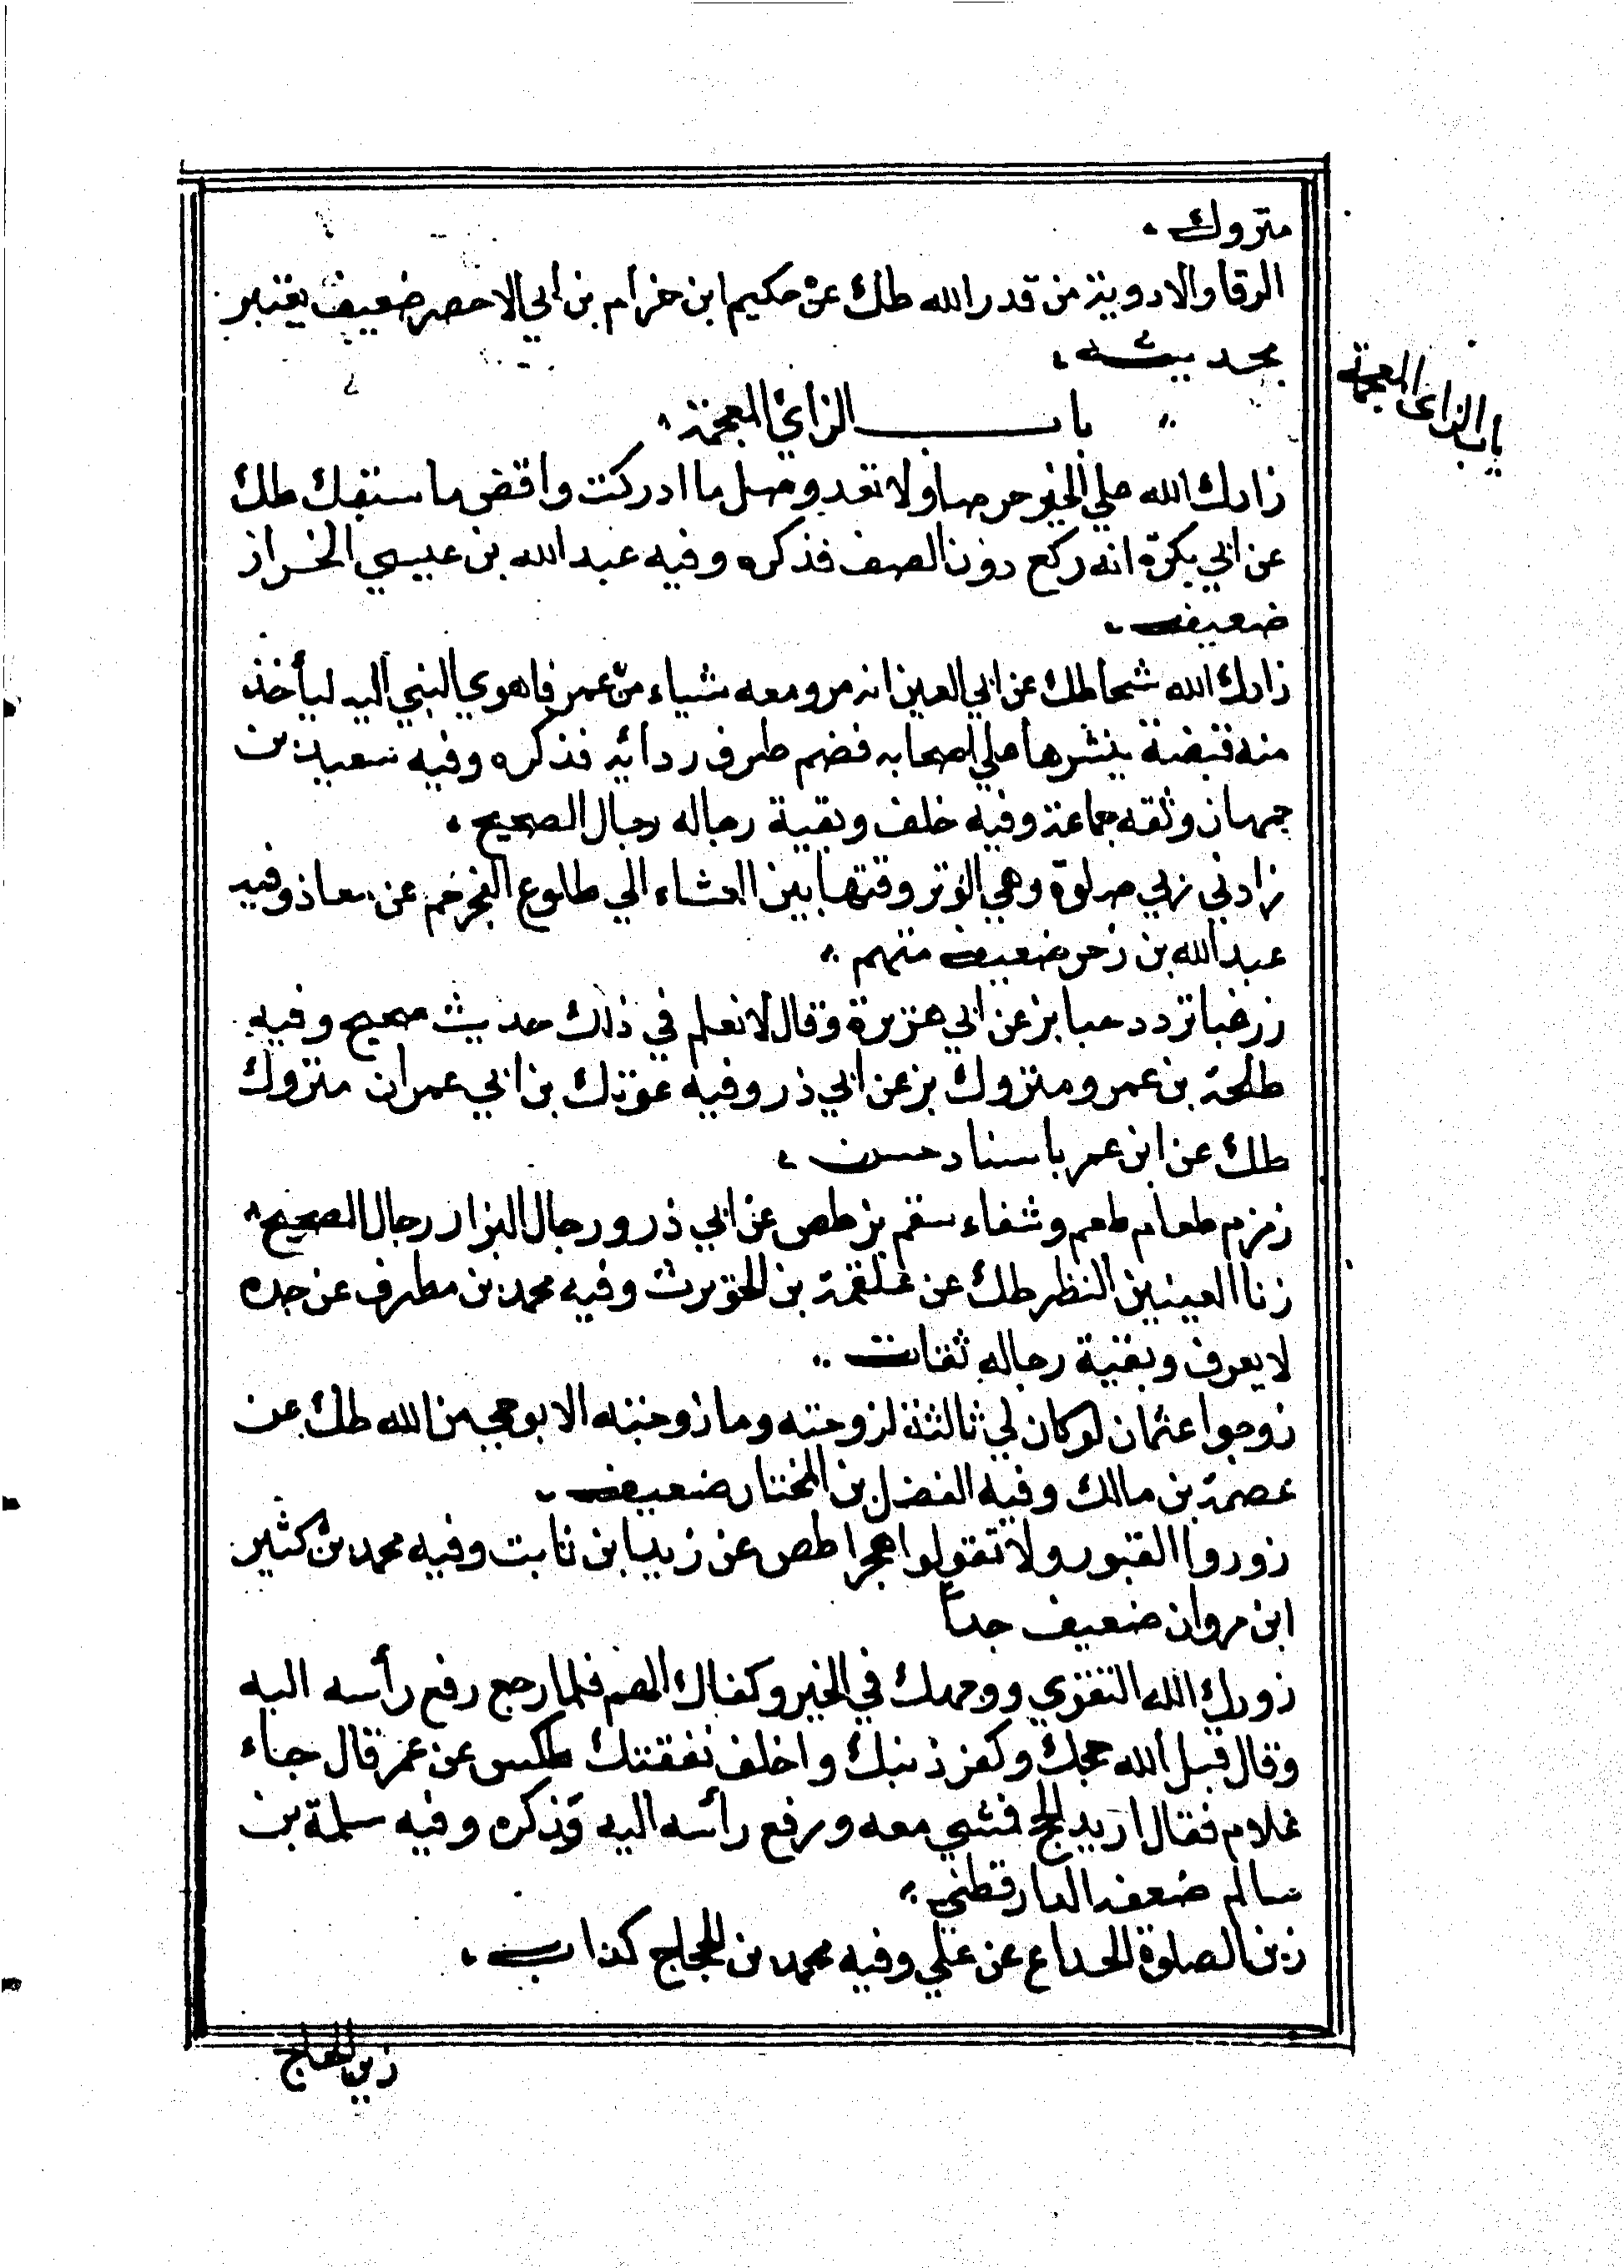 متروك
الرقا والادوية من قدر الله طك عن حكيم ابن حزام بن ابي الاخضر ضعيف يعتبر
بحديثه
باب الزاي المعجمة
باب الزاي المعجمة
زادك الله علي الخير حرصا ولا تعد وصل ما ادركت واقض ما سبقك طك
عن ابي بكرة انه ركع دون الصف فذكره وفيه عبد الله بن عيسي الخزاز
ضعيف
زادك الله شحا طك عن ابي العين انه مر ومعه شياء من عمر فاهوي النبي اليه ليأخذ
منه قبضة ينثرها علي اصحابه فضم طرف ردائه فذكره وفيه سعيد بن
جمهان وثقه جماعة وفيه خلف وبقية رجاله رجال الصحيح
زادني ربي صلوة وهي الوتر وقتها بين العشاء الي طلوع الفجر حم عن معاذ وفيه
عبد الله بن زحر ضعيف متهم
زر غبا تزدد حبا بز عن ابي هريرة وقال لا نعلم في ذلك حديث صحيح وفيه
طلحة بن عمرو متروك بز عن ابي ذر وفيه عويك بن ابي عمران متروك
طك عن ابن عمر باسناد حسن
زمزم طعام طعم وشفاء سقم بز طص عن ابي ذر ورجال البزار رجال الصحيح
زنا العينين النظر طك عن علقمة بن الحويرث وفيه محمد بن مطرف عن جده
لا يعرف وبقية رجاله ثقات
زوجوا عثمان لو كان لي ثالثة لزوجته وما زوجته الا بوحي من الله طك عن
عصمة بن مالك وفيه الفضل بن المختار ضعيف
زوروا القبور ولا تقولوا هجرا طص عن زيد ابن ثابت وفيه محمد بن كثير
ابن مروان ضعيف جداً
زودك الله التقوي ووجهك في الخير وكفاك الهم فلما رجع رفع رأسه اليه
وقال قبل الله حجك وكفر ذنبك واخلف نفقتك طكس عن عمر قال جاء
غلام فقال اريد الحج فمشي معه ورفع رأسه اليه وذكره وفيه سلمة بن
سالم ضعفه الدارقطني
زين الصلوة الحداع عن علي وفيه محمد بن الحجاج كذاب
زين الحاج